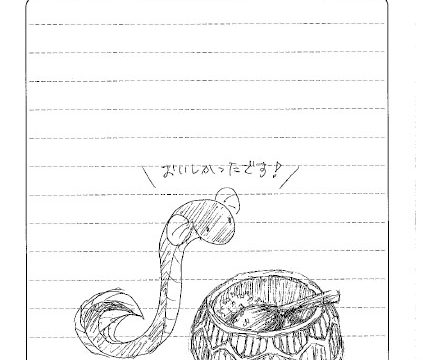 おいしかったです!